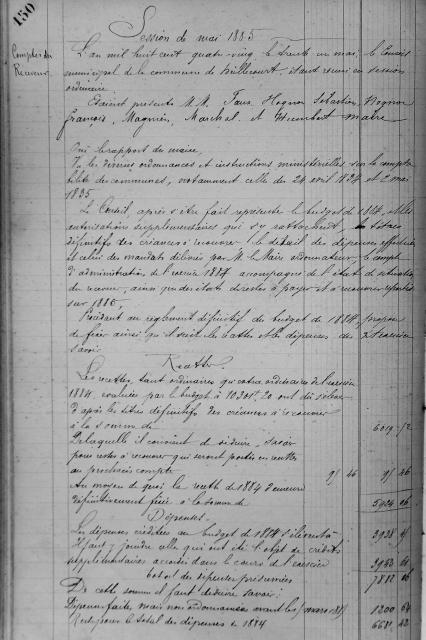 150
Session de mai 1885
Comptes du
Receveur
L'an mil huit cent quatre vingt le trente un mai, le Conseil
municipal de la commune de étant réuni en session
ordinaire
Etaient présents M.M. Hognon Sébastien, Hognon
François, Magnier, Marchal et Humbert maire
Ouï le rapport du maire,
Vu les diverses ordonnances et instructions ministérielles sur la compta
bilité des communes, notamment celle du 24 avril 1834 et 2 mai
1835
Le Conseil, après s'être fait représenter le budget de 1884 et les
autorisations supplémentaires qui s'y rattachent, les titres
définitifs des créances à recouvrer, le détail des dépenses effectuées
et celui des mandats délivrés par M. le Maire ordonnateur, le compte
d'administration de l'exercice 1884 accompagné de l'état de situation
du receveur, ainsi que des états de restes à payer et à recouvrer reportés
sur 1885,
Procédant au règlement définitif du budget de 1884, propose
de fixer ainsi qu'il suit les recettes et les dépenses de l'exercice
savoir
Recettes
Les recettes, tant ordinaires qu'extraordinaires de l'exercice
1884, évaluées par le budget à 20 ont dû s'élever
d'après les titres définitifs des créances à recouvrer
à la somme de 6019 72
De laquelle il convient de déduire, savoir
pour restes à recouvrer qui seront portés en recettes
au prochain compte 46 46
Au moyen de quoi la recette de 1884 demeure
définitivement fixée à la somme de
Dépenses
Les dépenses créditées au budget de 1884 s'élèvent à
Il faut y joindre celles qui ont été l'objet de crédits
supplémentaires accordés dans le cours de l'exercice
Total des dépenses présumées
De cette somme il faut déduire savoir:
Dépenses faites, mais non ordonnancées avant le mars 1200 64
Reste pour le total des dépenses de 1884 6681 42